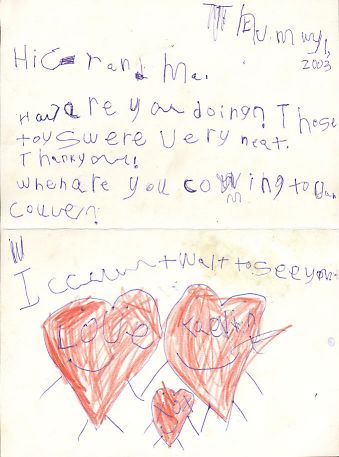 Thu. May 1,
2003
Hi Grand Ma.
How are you doing? Those
toys were very neat.
Thankyou!
when are you coming to Van
couver?
I ccan't wait to see you
Love